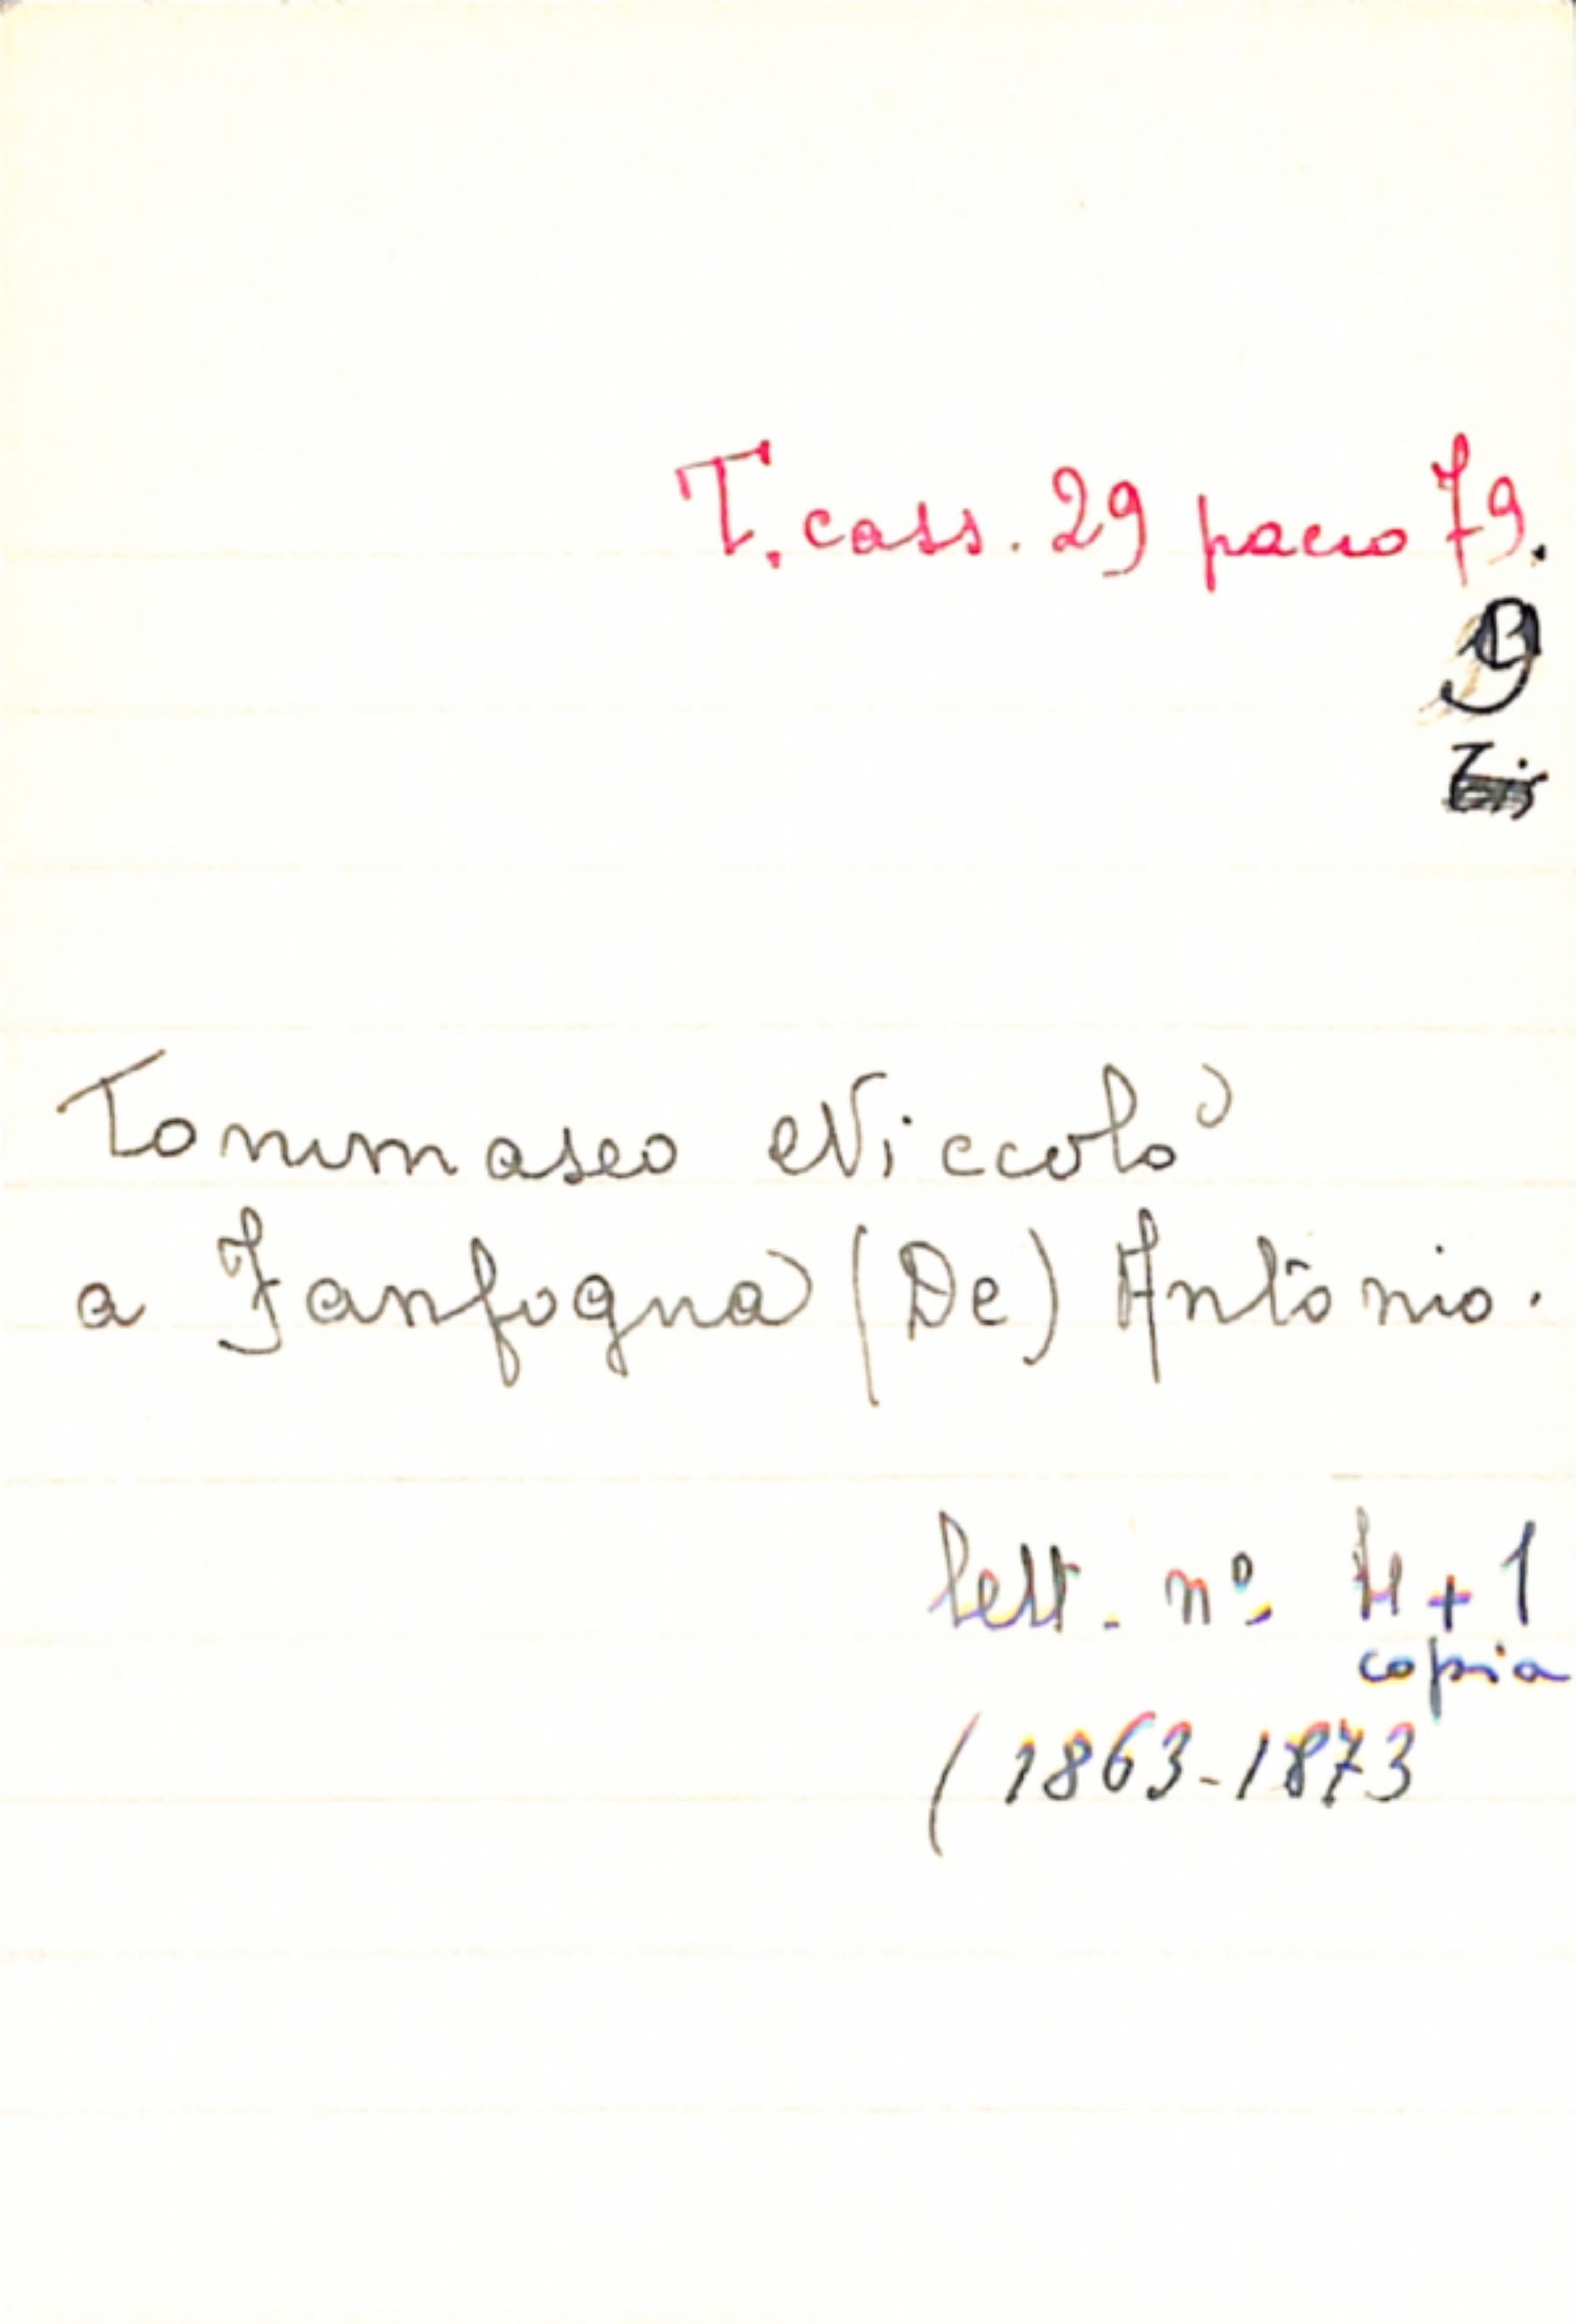 T. cass. 29 pacco 79.
Tommaseo Niccolò
a Fanfogna (De) Antonio.
lett. n° 4 + 1
copia
(1863-1873